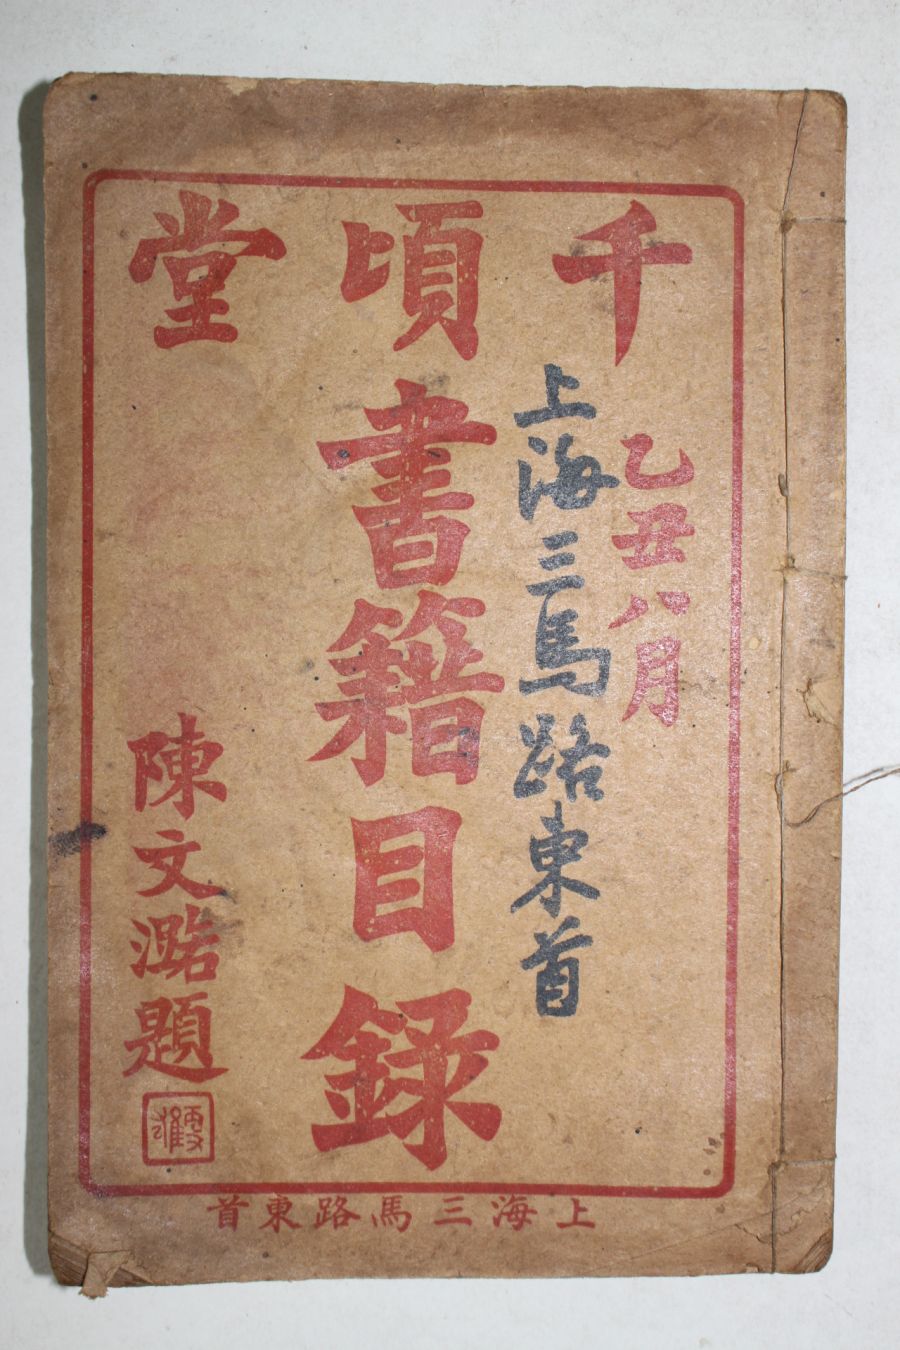 千頃堂
乙丑八月
上海三馬路東首
書籍目錄
陳文澔題
上海三馬路東首